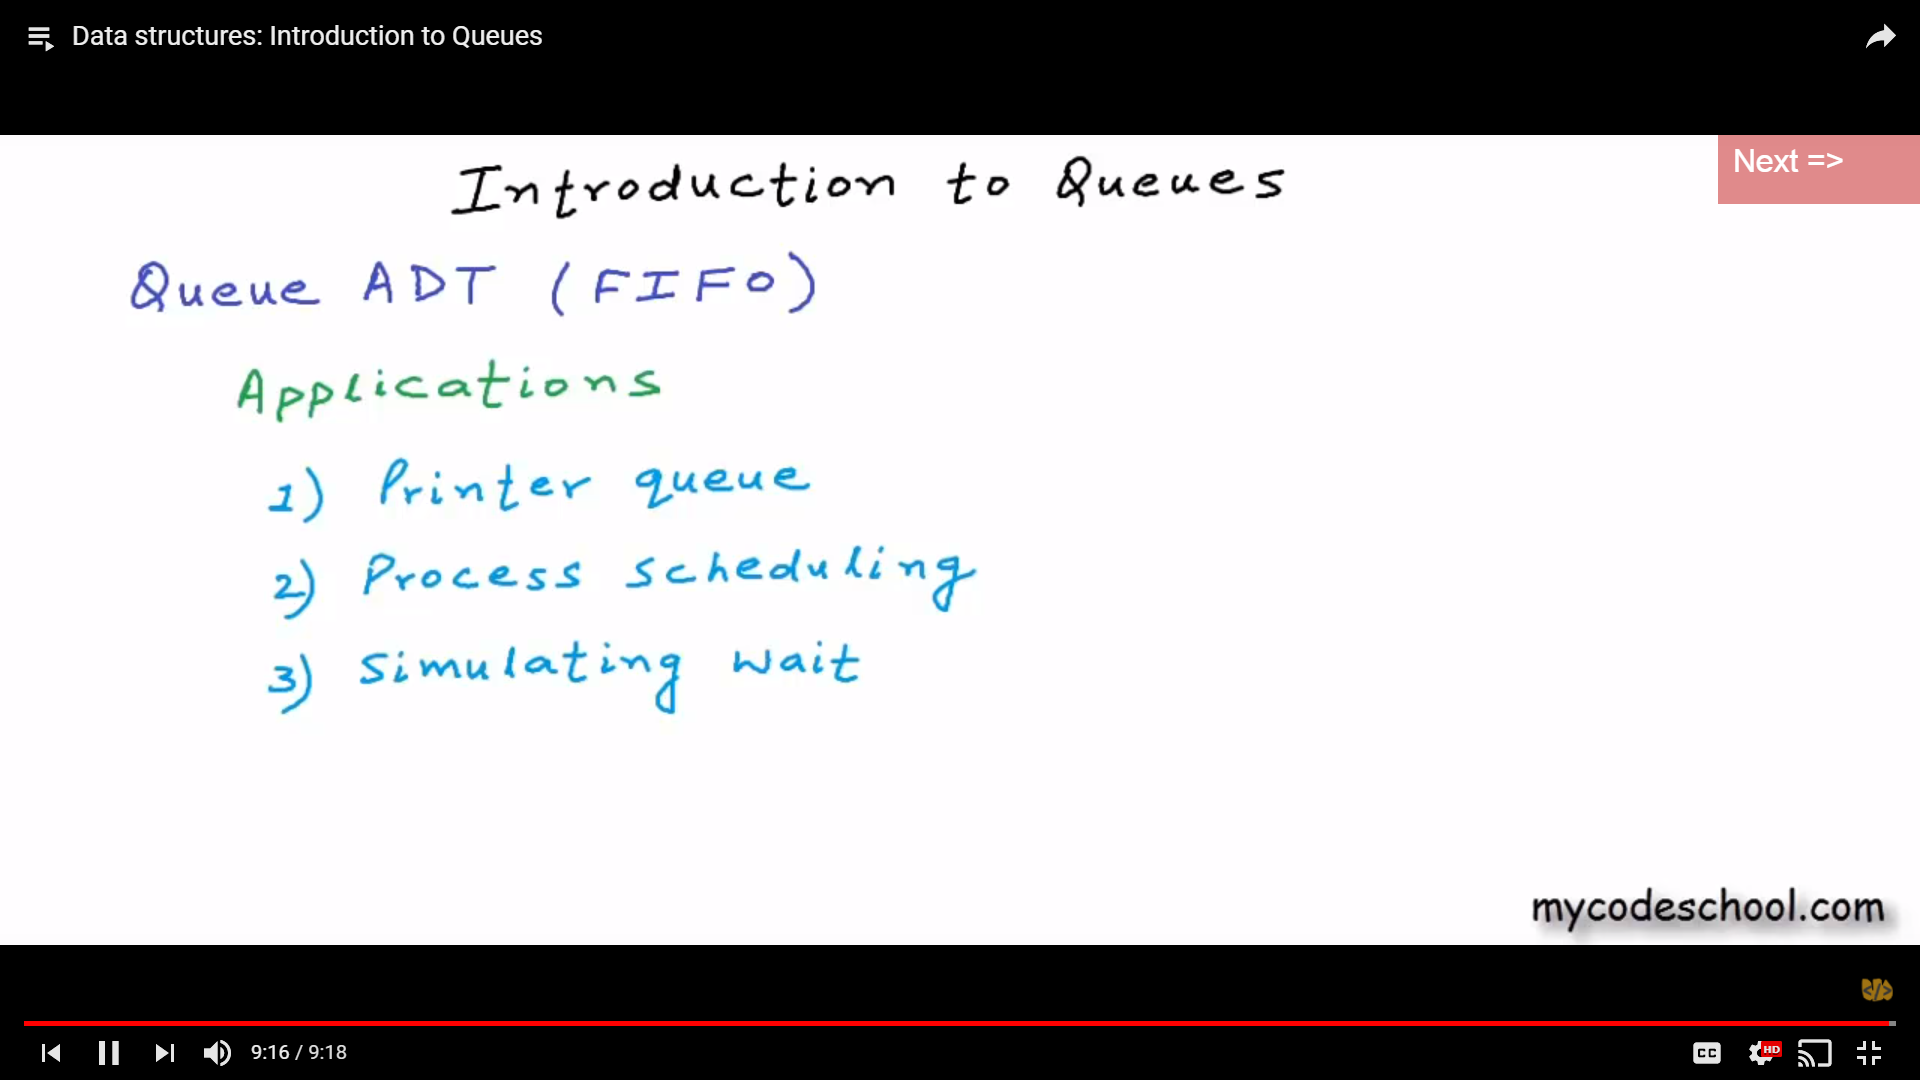 Data structures: Introduction to Queues
Next =>
Introduction to Queues
Queue ADT (FIFO)
Applications
1) Printer queue
2) Process scheduling
3) Simulating wait
mycodeschool.com
</>
9:16 / 9:18
CC
HD